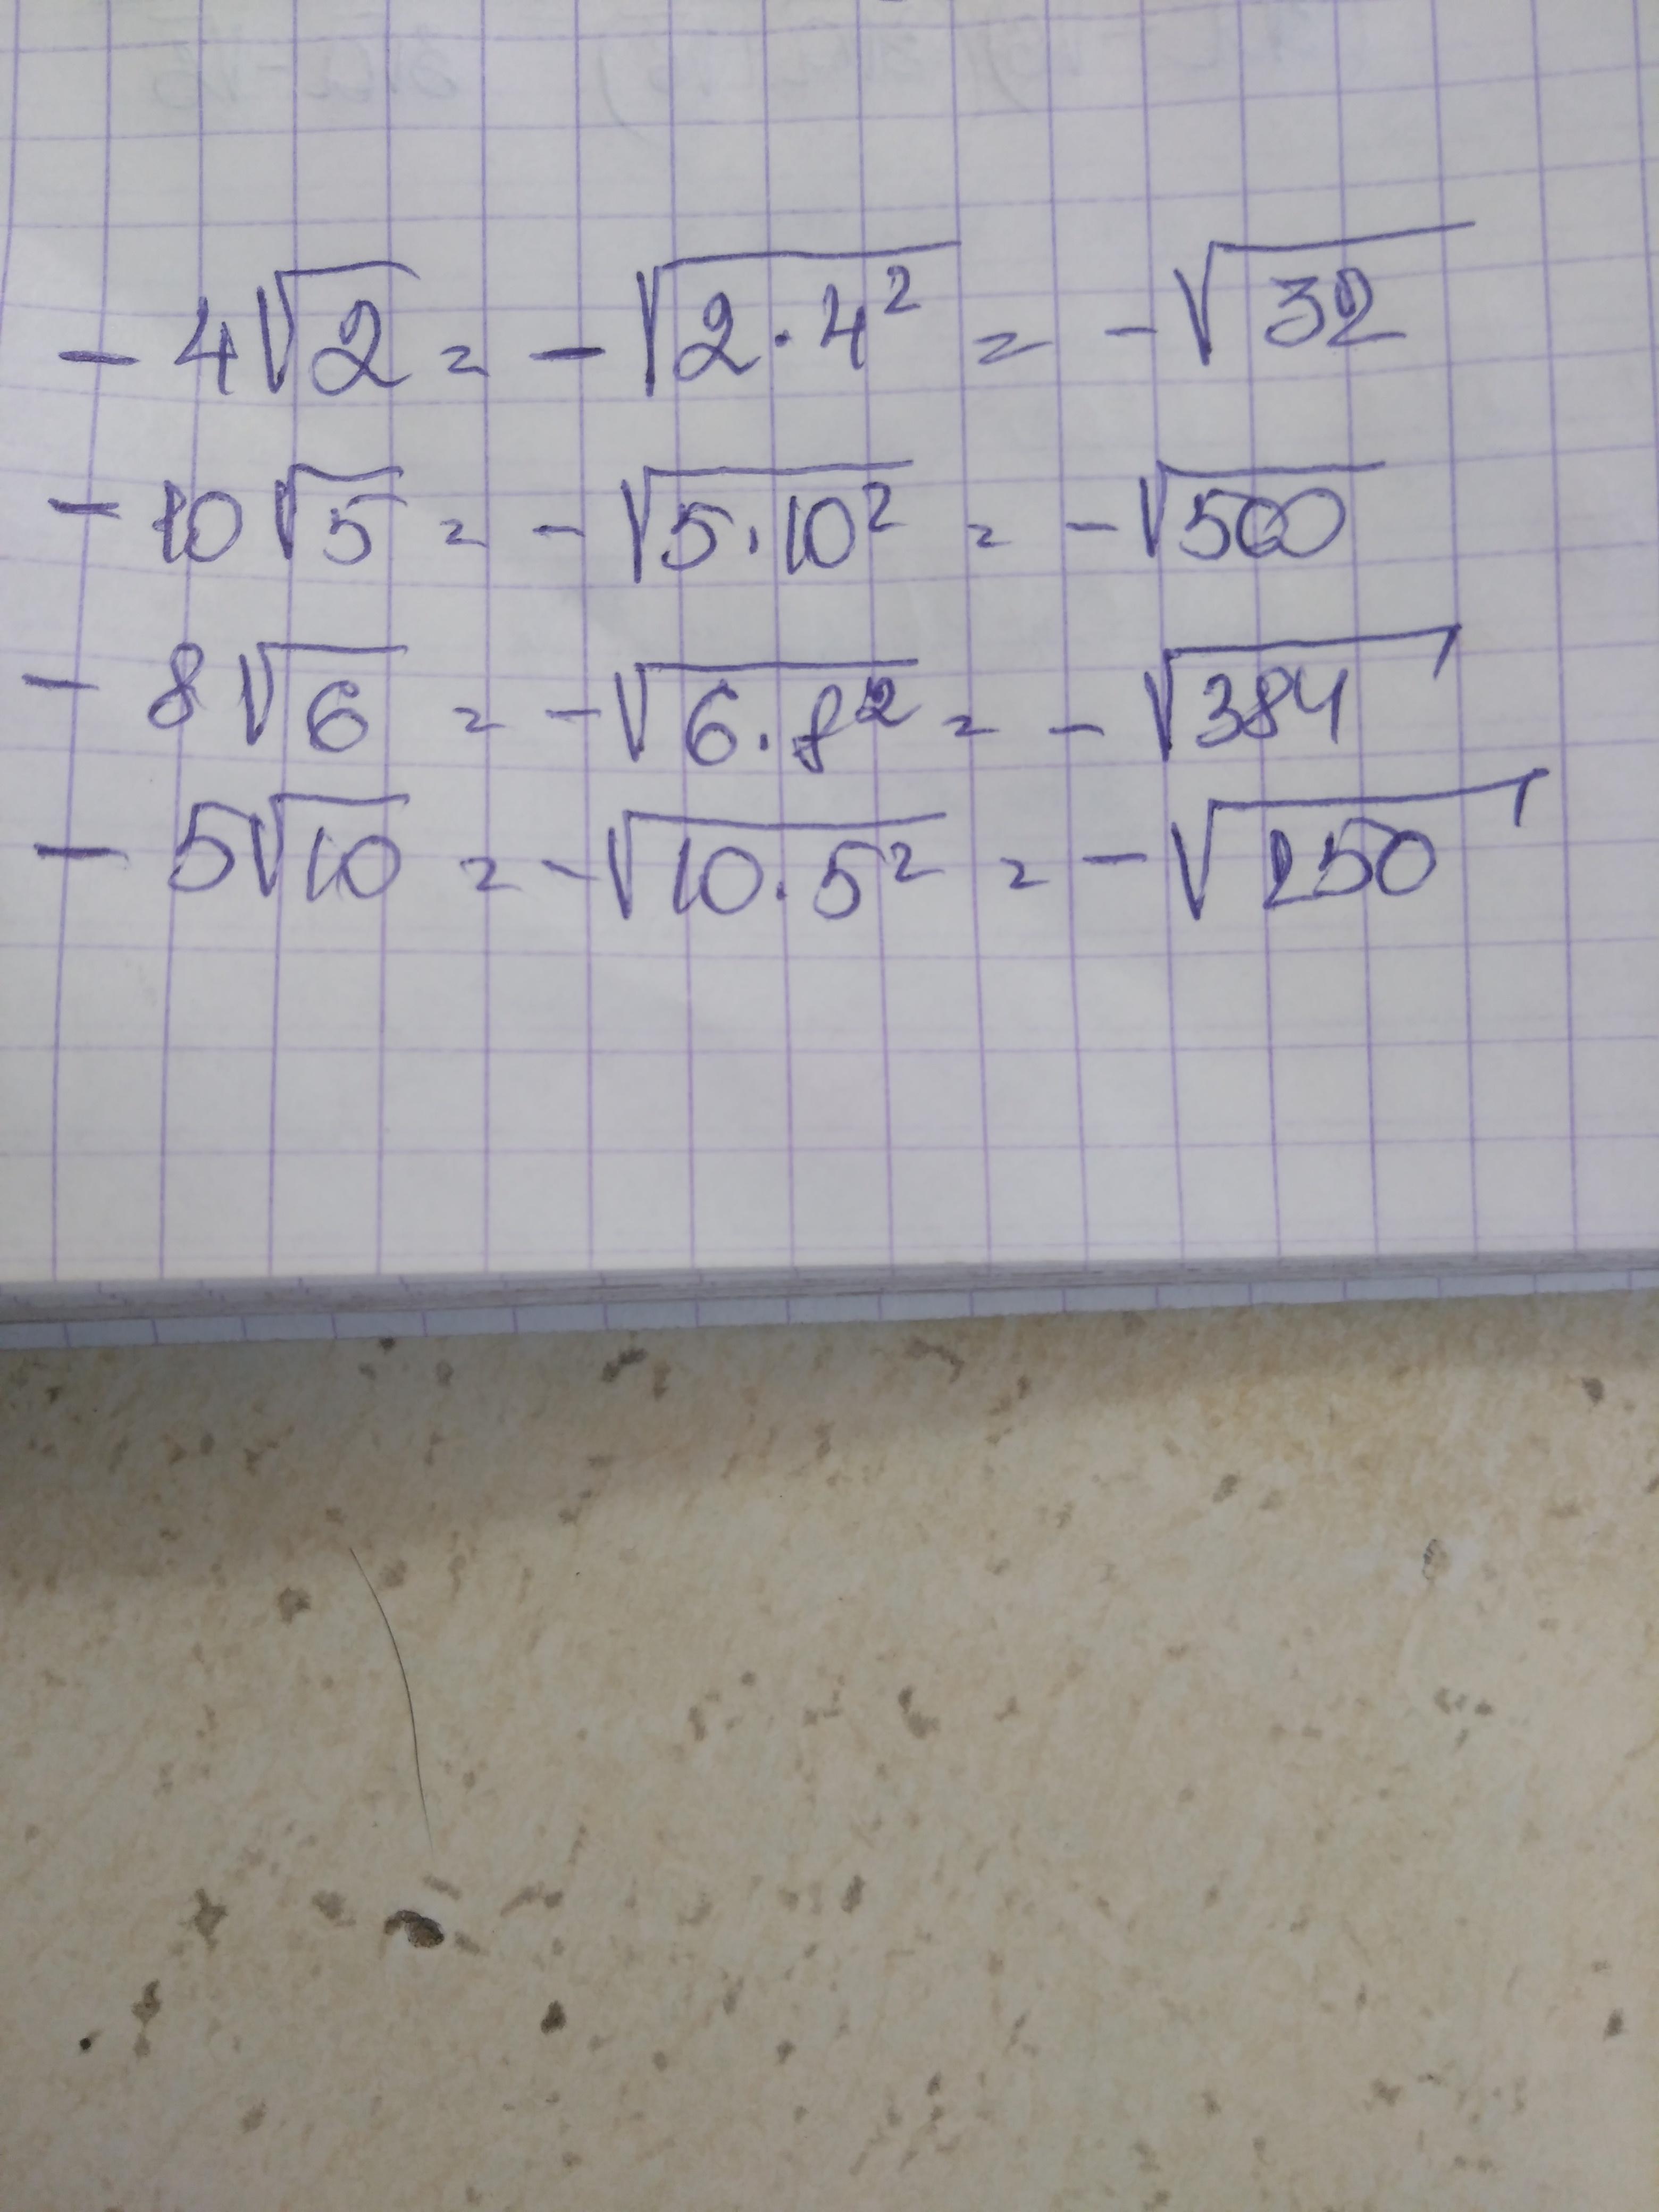 - 4√2 = - √2·4² = - √32
- 10√5 = - √5·10² = - √500
- 8√6 = - √6·8² = - √384
- 5√10 = - √10·5² = - √250